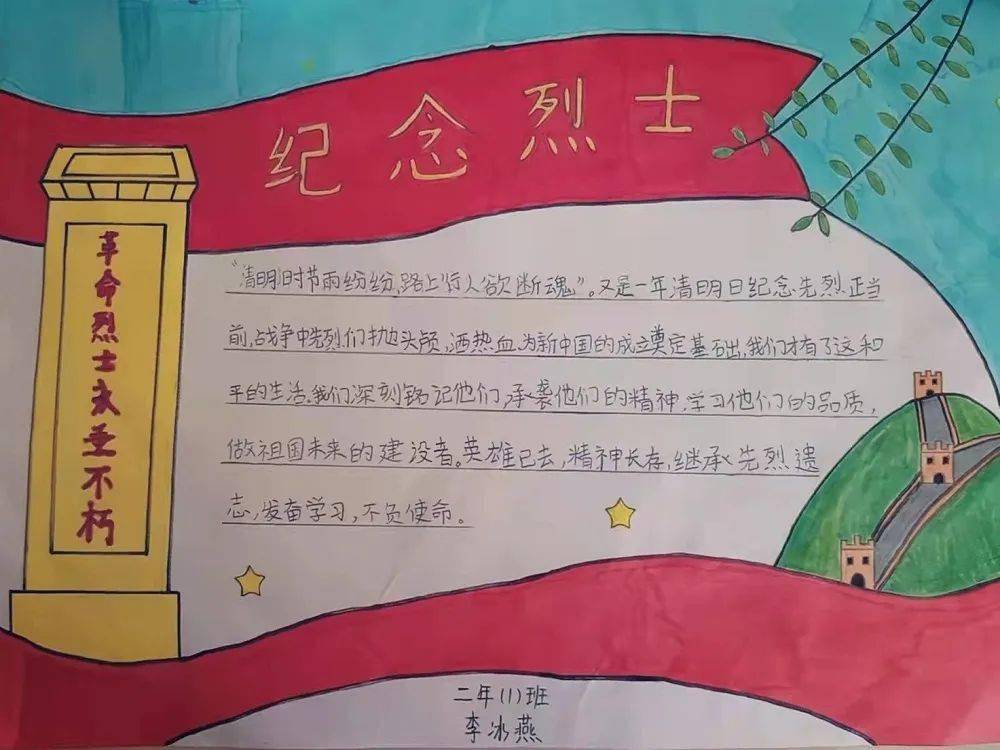 纪念烈士
革命烈士永垂不朽
“清明时节雨纷纷,路上行人欲断魂”。又是一年清明日纪念先烈正当
前,战争中先烈们抛头颅,洒热血,为新中国的成立奠定基础,我们才有了这和
平的生活,我们深刻铭记他们,承袭他们的精神,学习他们的品质,
做祖国未来的建设者。英雄已去,精神长存,继承先烈遗
志,发奋学习,不负使命。
二年(1)班
李冰燕